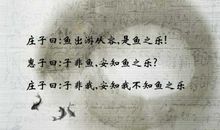 庄子曰:鱼出游从容,是鱼之乐!
惠子曰:子非鱼,安知鱼之乐?
庄子曰:子非我,安知我不知鱼之乐